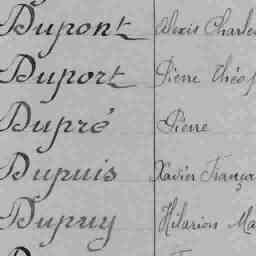 Dupont Alexis Charles
Duport Pierre Théop
Dupré Pierre
Dupuis Xavier França
Dupuy Hilarion Ma